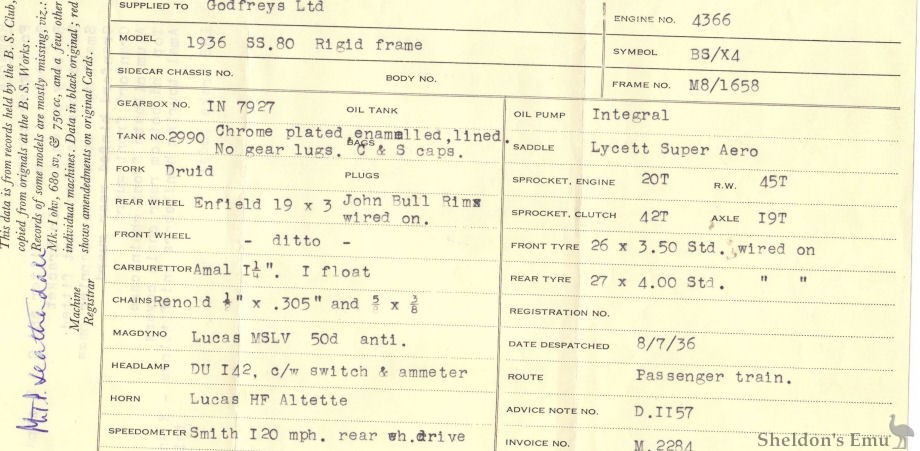 This data is from records held by the B. S. Club,
copied from orignals at the B. S. Works.
Records of some models are mostly missing, viz.:
Mk. I ohv, 680 sv, & 750 cc, and a few other
individual machines. Data in black original; red
shows amedments on original Cards.
Machine
Registrar
SUPPLIED TO Godfreys Ltd
MODEL 1936 SS.80 Rigid frame
SIDECAR CHASSIS NO. BODY NO.
ENGINE NO. 4366
SYMBOL BS/X4
FRAME NO. M8/1658
GEARBOX NO. IN 7927 OIL TANK
TANK NO. 2990 Chrome plated,enamelled,lined.
BAGS
No gear lugs. C & S caps.
FORK Druid PLUGS
REAR WHEEL Enfield 19 x 3 John Bull Rims
wired on.
FRONT WHEEL - ditto -
CARBURETTOR Amal I¼". I float
CHAINS Renold ½" x .305" and ⅝ x ⅜
MAGDYNO Lucas MSLV 50d anti.
HEADLAMP DU I42, c/w switch & ammeter
HORN Lucas HF Altette
SPEEDOMETER Smith I20 mph. rear wh.drive
OIL PUMP Integral
SADDLE Lycett Super Aero
SPROCKET, ENGINE 20T R.W. 45T
SPROCKET, CLUTCH 42T AXLE I9T
FRONT TYRE 26 x 3.50 Std. wired on
REAR TYRE 27 x 4.00 Std. " "
REGISTRATION NO.
DATE DESPATCHED 8/7/36
ROUTE Passenger train.
ADVICE NOTE NO. D.II57
INVOICE NO. M.2284
Sheldon's Emu